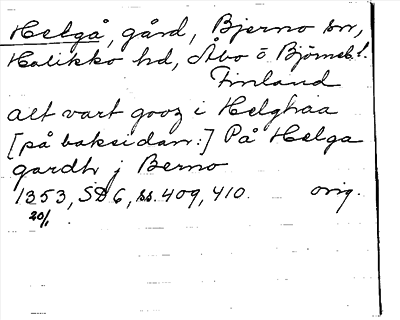 Helgå, gård, Bjerno sn,
Halikko hd, Åbo ö Björneb. l.
Finland
alt vart gooz i Helghaa
[på baksidan:] På Helga
gardh j Berno
1353, SD 6, ss. 409, 410. orig.
20/1